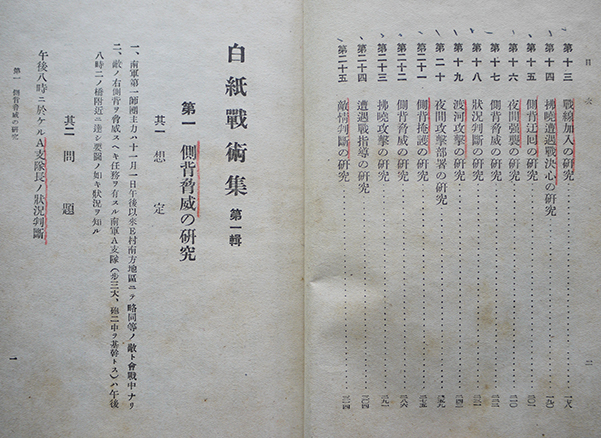 目次
二
第十三 戰線加入の研究
第十四 拂曉遭遇戰決心の研究
第十五 側背迂回の研究
第十六 夜間強襲の研究
第十七 側背脅威の研究
第十八 狀況判斷の研究
第十九 渡河攻擊の研究
第二十 夜間攻擊部署の研究
第二十一 側背掩護の研究
第二十二 側背脅威の研究
第二十三 拂曉攻擊の研究
第二十四 遭遇戰指導の研究
第二十五 敵情判斷の研究
白紙戰術集 第一輯
第一 側背脅威の研究
其一 想定
一、南軍第一師團主力ハ十一月一日午後以來E村南方地區ニテ略同等ノ敵ト會戰中ナリ
二、敵ノ右側背ヲ脅威スヘキ任務ヲ有スル南軍A支隊(步三大、砲二中ヲ基幹トス)ハ午後
八時二ノ橋附近ニ達シ要圖ノ如キ狀況ヲ知ル
其二 問題
午後八時ニ於ケルA支隊長ノ狀況判斷
第一 側背脅威の研究
一